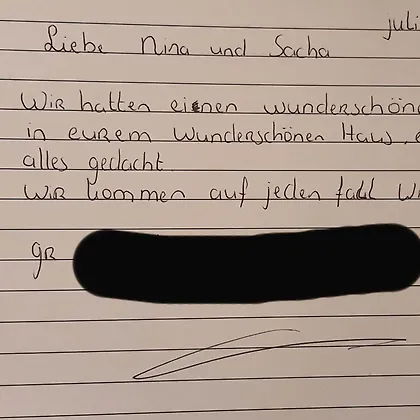 juli
Liebe Nina und Sacha
Wir hatten einen wunderschöne
in eurem wunderschönen Haus. e
alles gedacht.
Wir kommen auf jeden fall Wi
gr